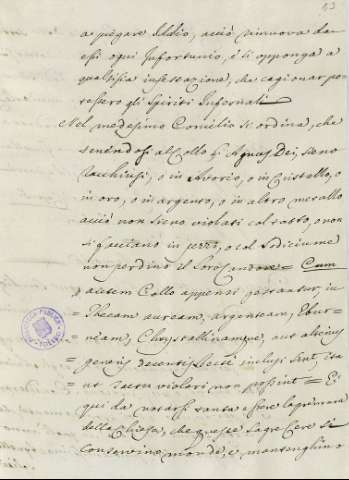 a pregare Iddio, acciò rimuova da
essi ogni Infortunio, e si opponga a
qualsisia infestazione, che cagionar po-
tessero gli Spiriti Infernali
Nel medesimo Concilio si ordina, che
tenendosi al Collo gl' Agnus Dei, siano
racchiusi, o in Avorio, o in Cristallo, o
in oro, o in argento, o in altro metallo
acciò non siano violati col tatto, o non
si facciano in pezzi, o col sudiciume
non perdino il loro candore = Cum
autem Collo appensi portantur, in
Thecam auream, argenteam, Ebur-
neam, Chrystallinamque, aut alterius
generis decentis inclusi sint, ita
ut tactu violari non possint = E
qui da notarsi tanta essere la premura
della Chiesa, che queste sagre Cere si
conservino monde, e mantenghino